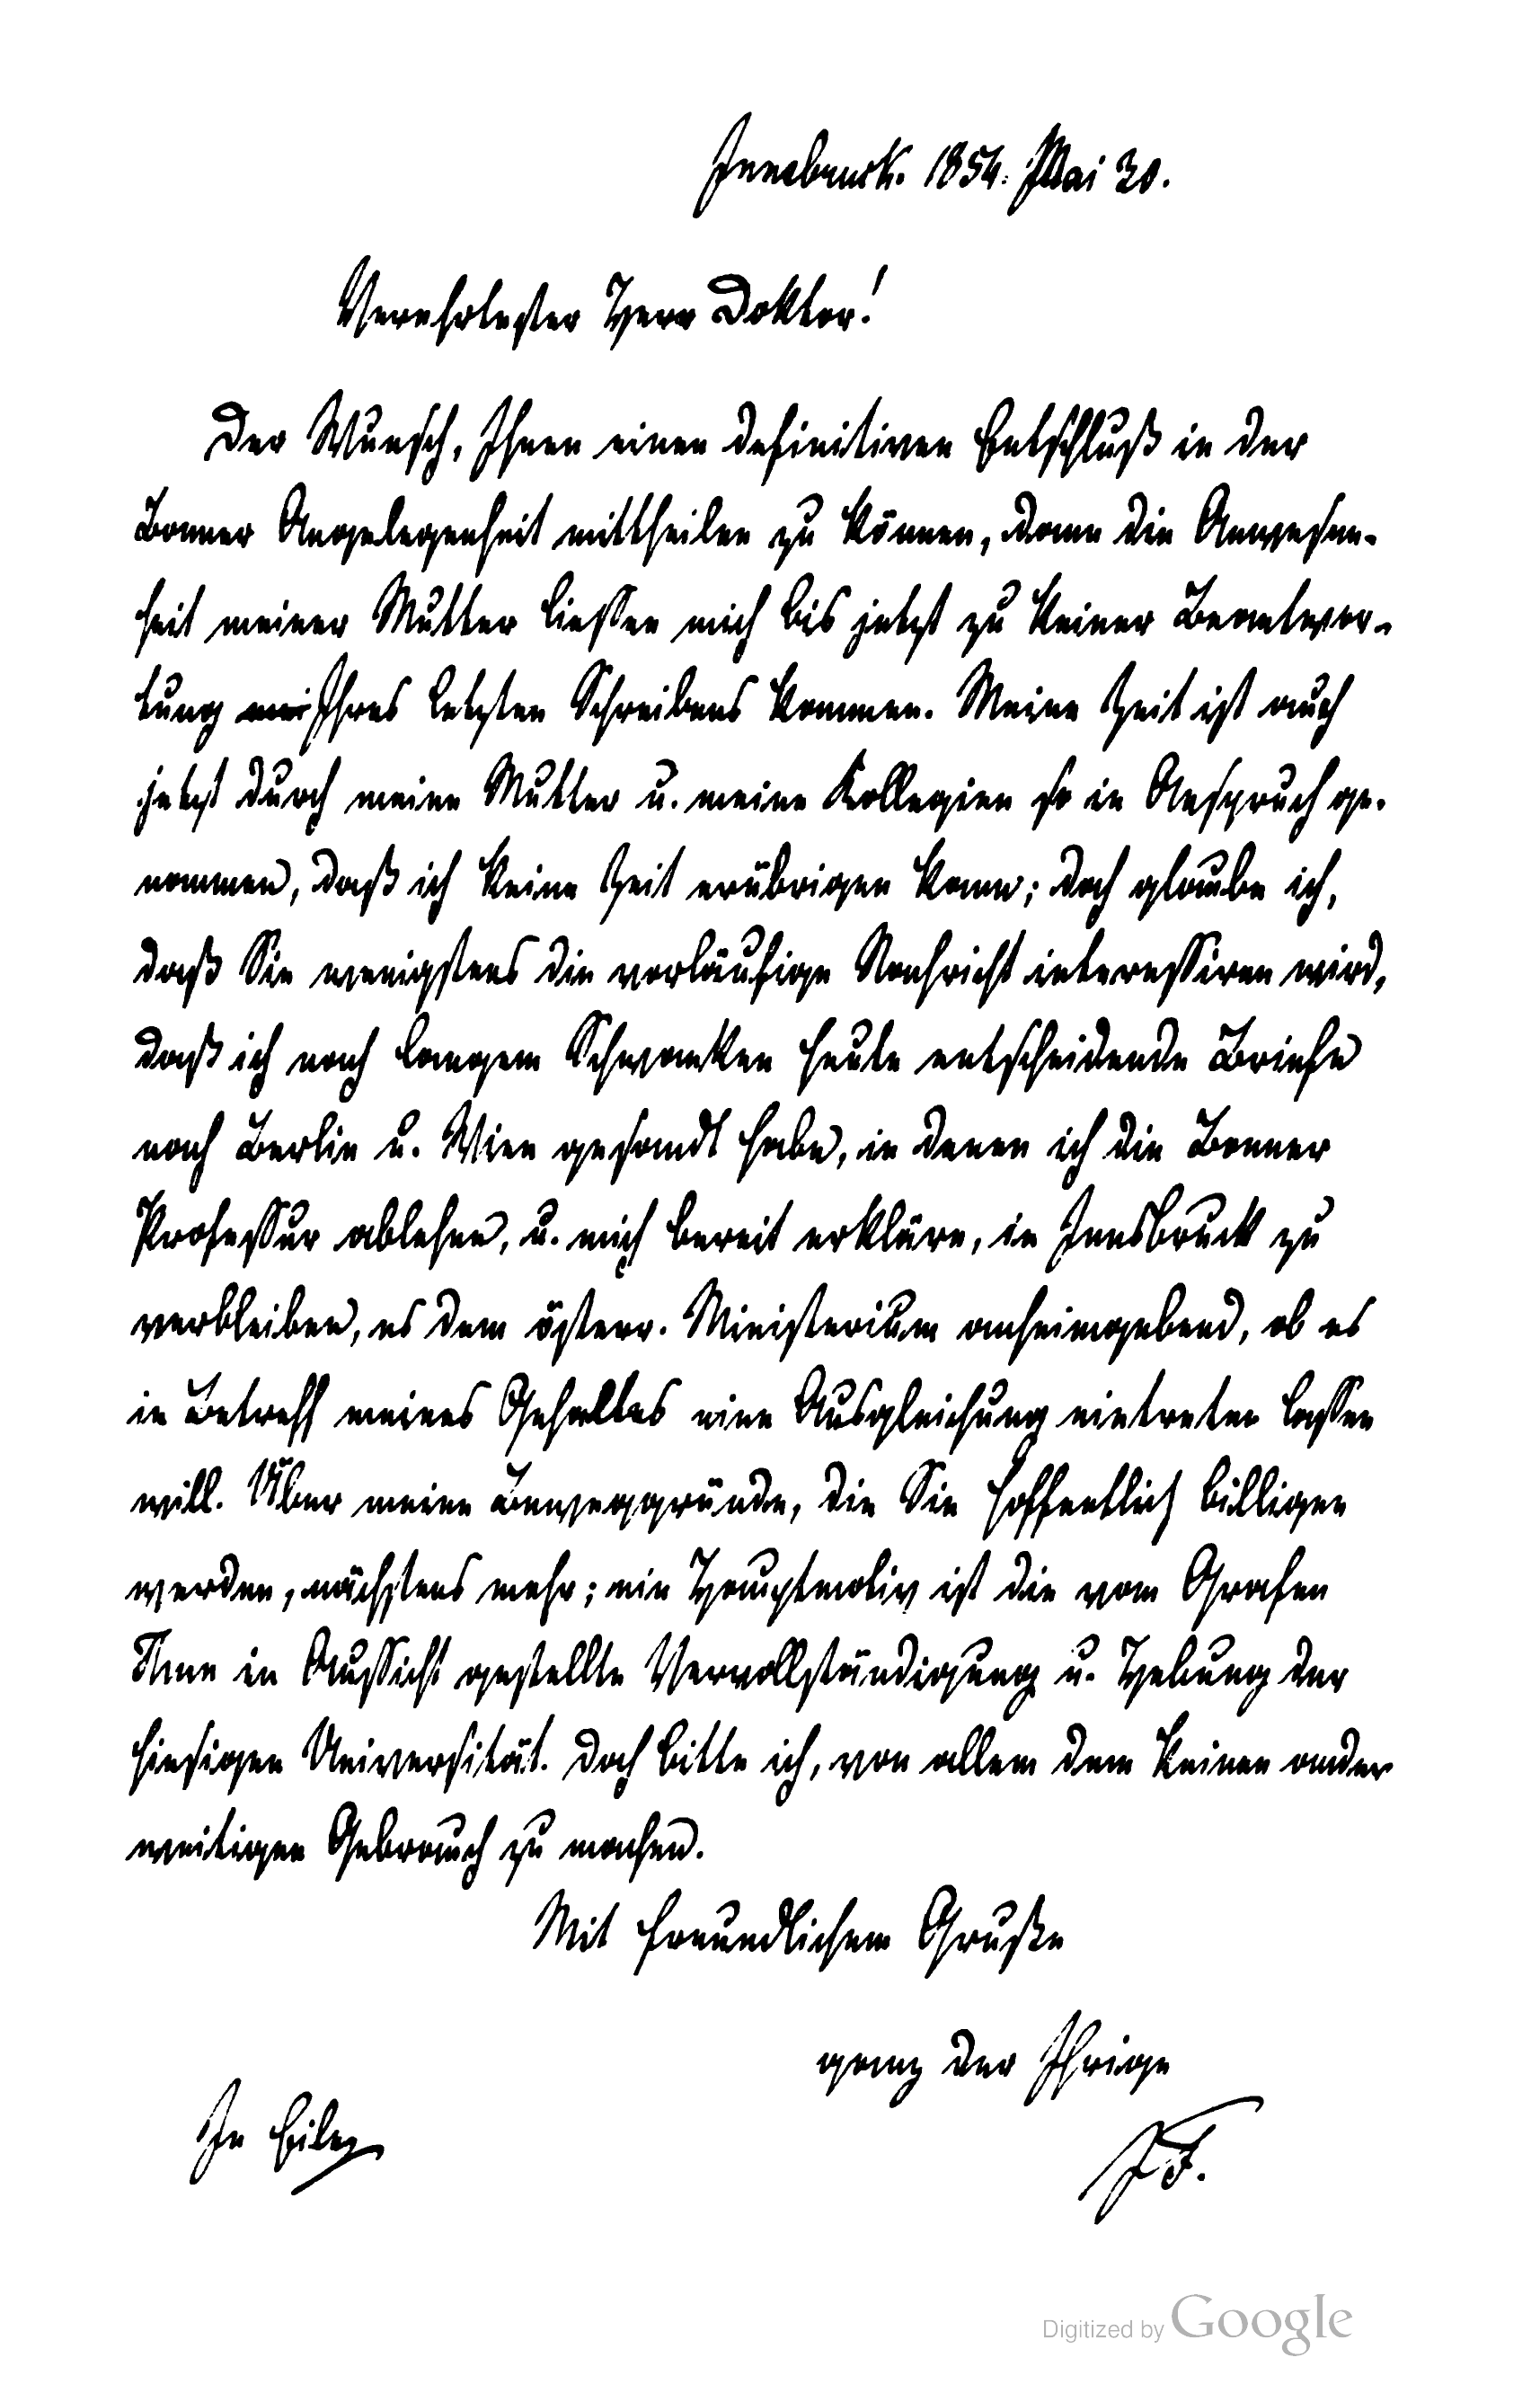 Innsbruck. 1854. Mai 30.
Verehrtester Herr Doktor!
Der Wunsch, Ihnen einen definitiven Entschluß in der
Bonner Angelegenheit mittheilen zu können, dann die Anwesen-
heit meiner Mutter ließen mich bis jetzt zu keiner Beantwor-
tung Ihres letzten Schreibens kommen. Meine Zeit ist auch
jetzt durch meine Mutter u. meine Kollegien so in Anspruch ge-
nommen, daß ich keine Zeit erübrigen kann; doch glaube ich,
daß Sie wenigstens die vorläufige Nachricht interessiren wird,
daß ich nach langem Schwanken heute entscheidende Briefe
nach Berlin u. Wien gesandt habe, in denen ich die Bonner
Professur ablehne, u. mich bereit erkläre, in Innsbruck zu
verbleiben, es dem österr. Ministerium anheimgebend, ob es
in Betreff meines Gehaltes eine Ausgleichung eintreten lassen
will. Über meine Beweggründe, die Sie hoffentlich billigen
werden, nächstens mehr; ein Hauptmotiv ist die vom Grafen
Thun in Aussicht gestellte Vervollständigung u. Hebung der
hiesigen Universität. Doch bitte ich, von allem dem keinen ander
weitigen Gebrauch zu machen.
Mit freundlichem Gruße
ganz der Ihrige
In Eile
J F.
Digitized by Google